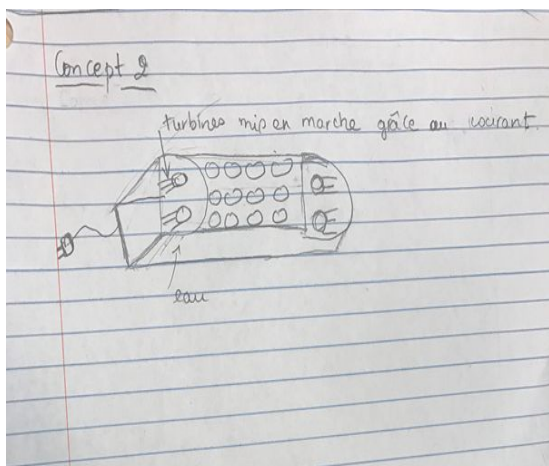 Concept 2
turbines mis en marche grâce au courant.
eau